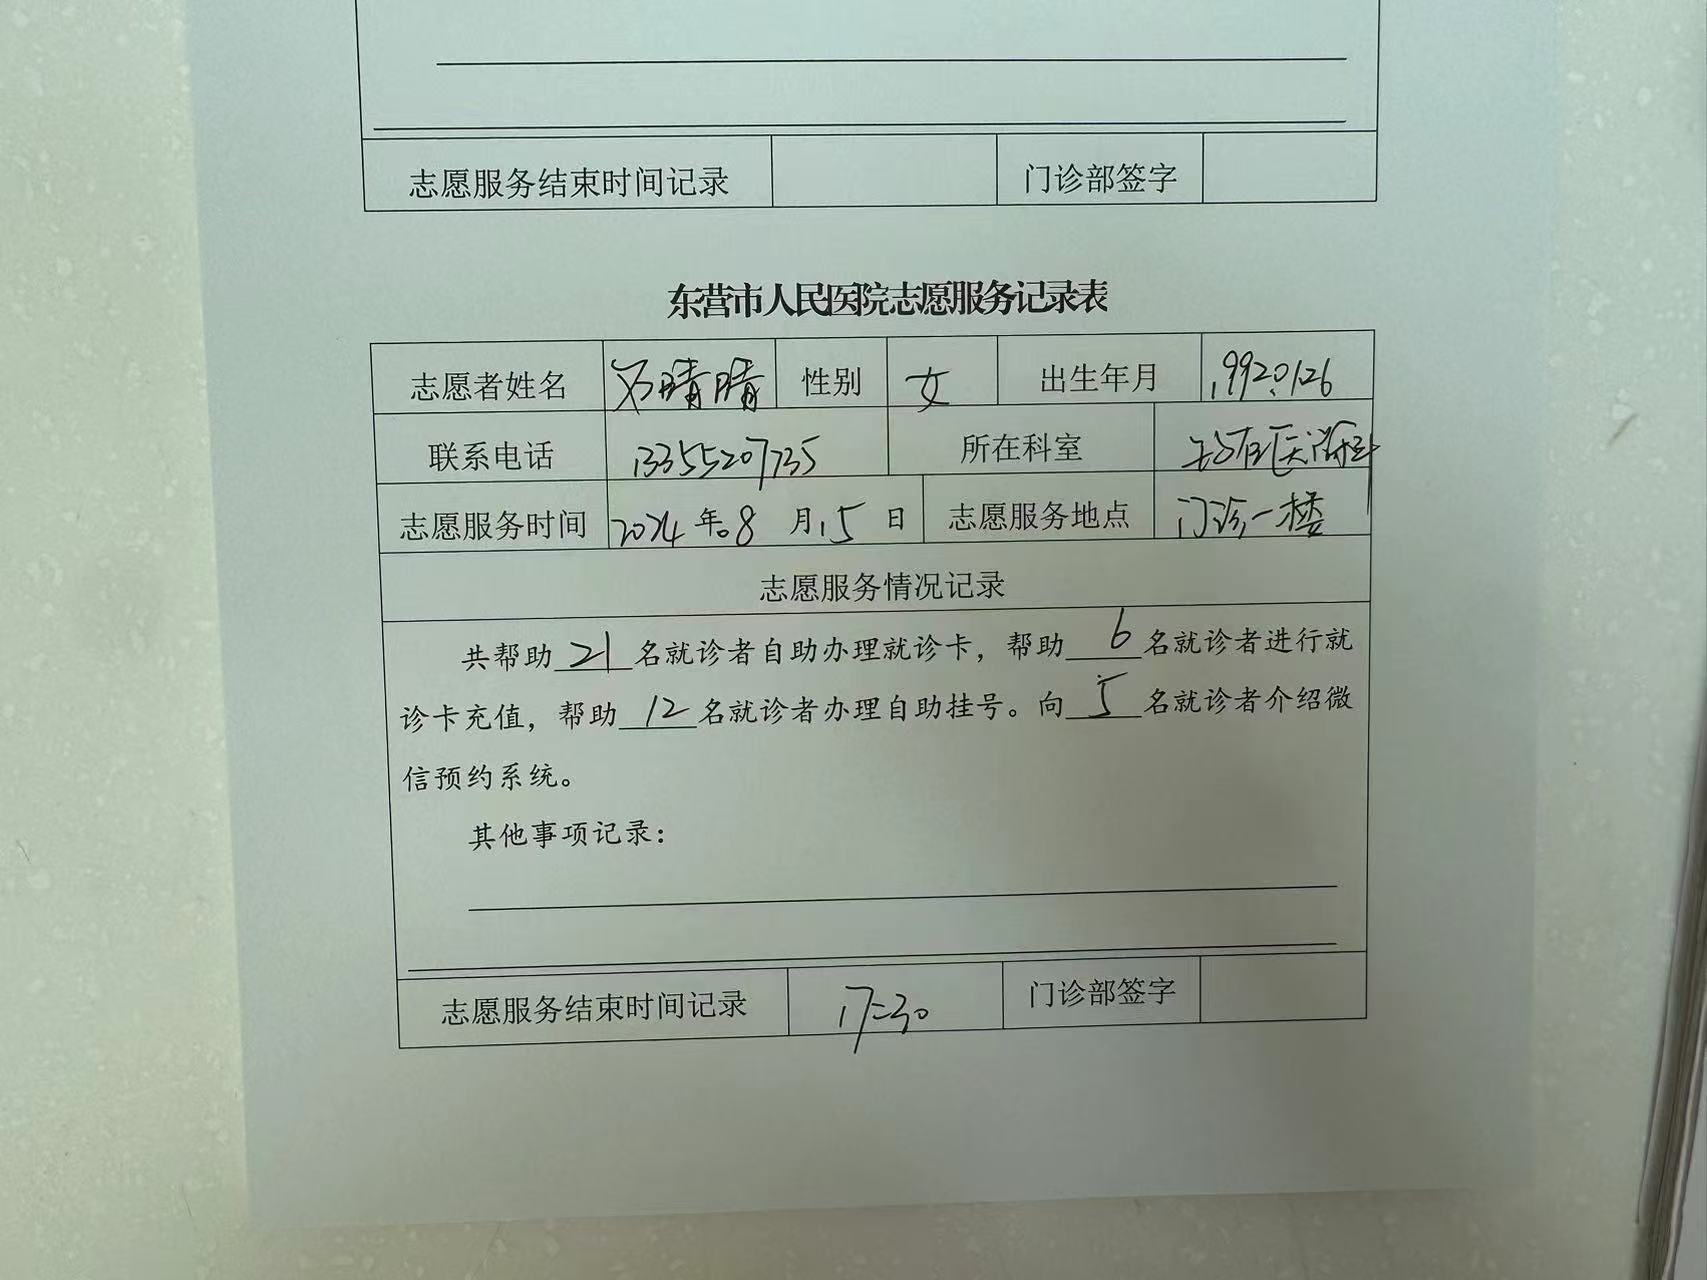 志愿服务结束时间记录 门诊部签字
东营市人民医院志愿服务记录表
志愿者姓名 邓晴晴 性别 女 出生年月 19920126
联系电话 13355207735 所在科室
志愿服务时间 2024年08月15日 志愿服务地点 门诊一楼
志愿服务情况记录
共帮助21名就诊者自助办理就诊卡，帮助6名就诊者进行就
诊卡充值，帮助12名就诊者办理自助挂号。向5名就诊者介绍微
信预约系统。
其他事项记录：
志愿服务结束时间记录 17:30 门诊部签字